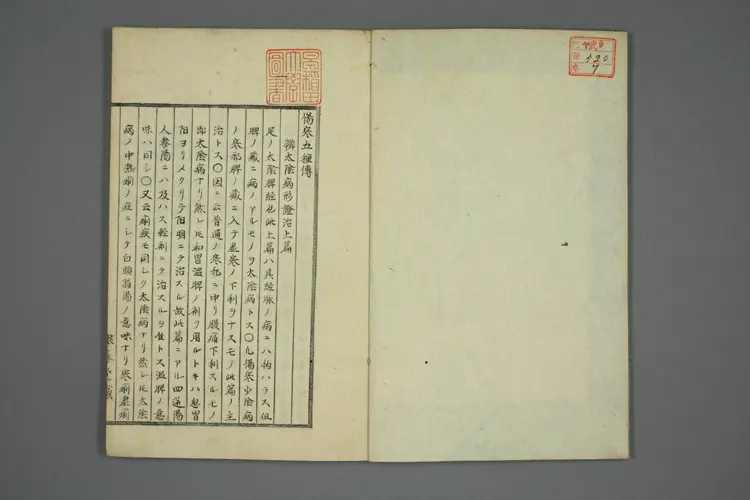 傷寒五種傳
辨太陰病形證治上篇
足ノ太陰脾經也此上篇ハ其經脉ノ病ニハ拘ハラス但
脾ノ藏ニ病ノアルモノヲ太陰病トス〇凡傷寒少陰病
ノ寒邪脾ノ藏ニ入テ虚寒ノ下利ヲナスモノ此篇ノ主
治トス〇因ニ云普通ノ寒邪ニ中リ腹痛下利スルモノ
即太陰病ナリ然レ𪜈和胃温脾ノ剤ヲ用ルトキハ忽胃
陽ヨリメクリテ陽明ニテ治スル故此篇ニアル四逆湯
人参湯ニハ及ハス輕剤ニテ治スルヲ佳トス温脾ノ意
味ハ同シ〇又云痢疾モ同シク太陰病ナリ然レ𪜈太陰
病ノ中熱痢ノ症ニシテ白頭翁湯ノ意味ナリ寒痢虚痢
早稲田大學圖書
530
7